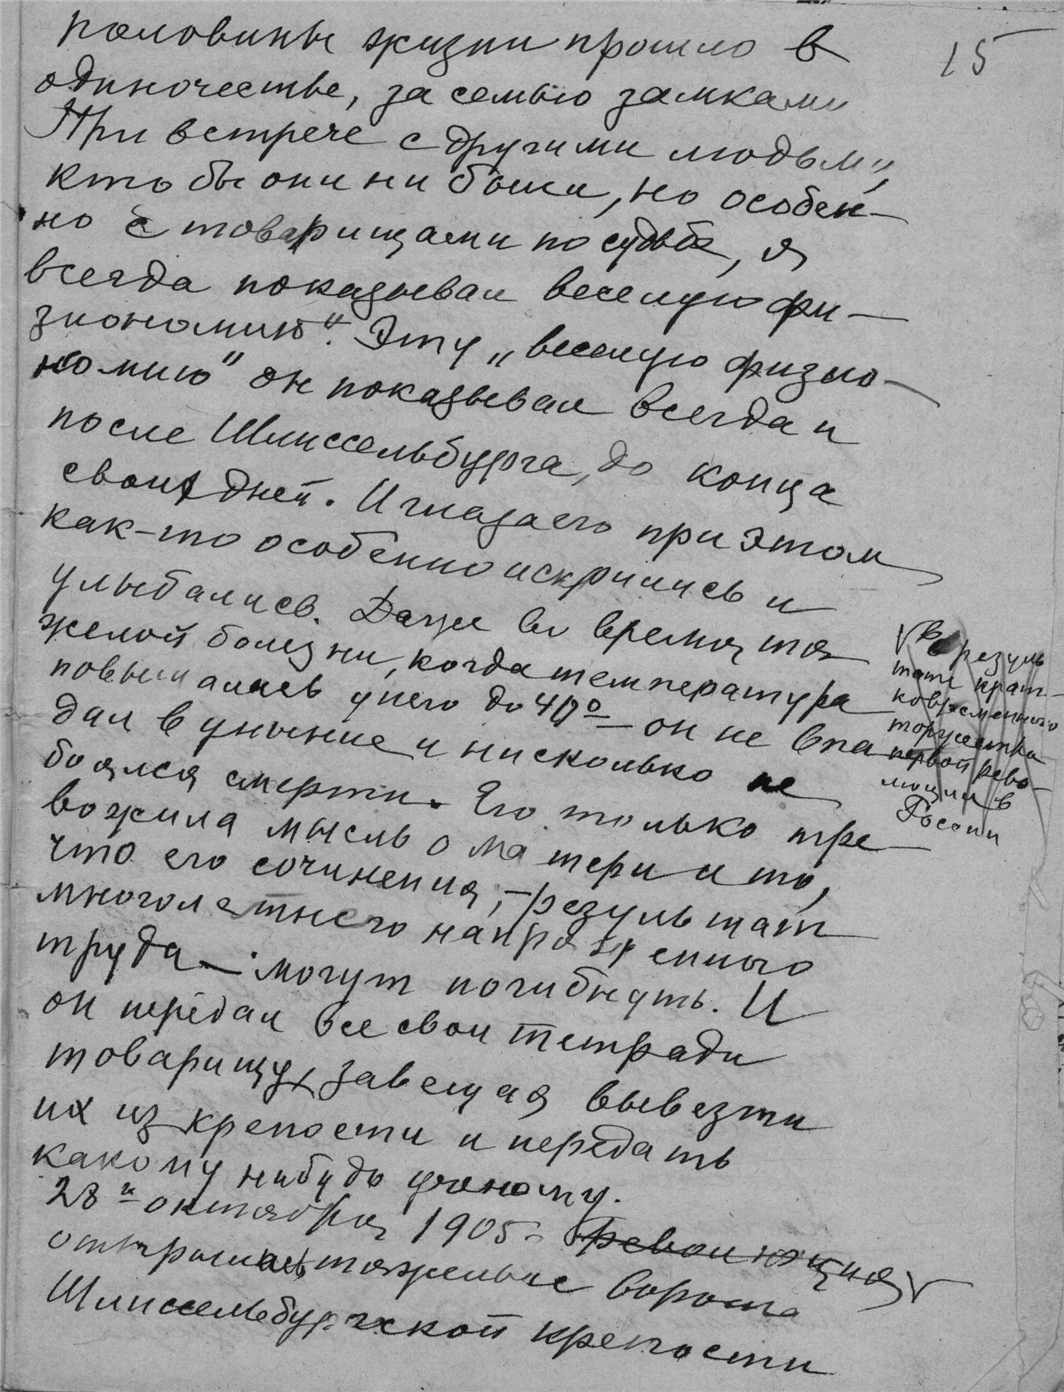 15
половины жизни прошло в
одиночестве, за семью замками
При встрече с другими людьми,
кто бы они ни были, но особен-
но с товарищами по судьбе, я
всегда показывал веселую фи-
зиономию". Эту „веселую физио-
номию" он показывал всегда и
после Шлиссельбурга, до конца
своих дней. И глаза его при этом
как-то особенно искрились и
улыбались. Даже во время тя
желой болезни, когда температура
повышалась у него до 40° — он не впа
дал в уныние и нисколько не
боялся смерти. Его только тре
вожила мысль о матери и то,
что его сочинения, — результат
многолетнего напряженного
труда — могут погибнуть. И
он передал все свои тетради
товарищу, завещая вывезти
их из крепости и передать
какому нибудь ученому.
28 октября 1905 г. революция
открылись тяжелые ворота
Шлиссельбургской крепости
В резуль
тате крат-
ковременного
торжества
первой рево-
люции в
России